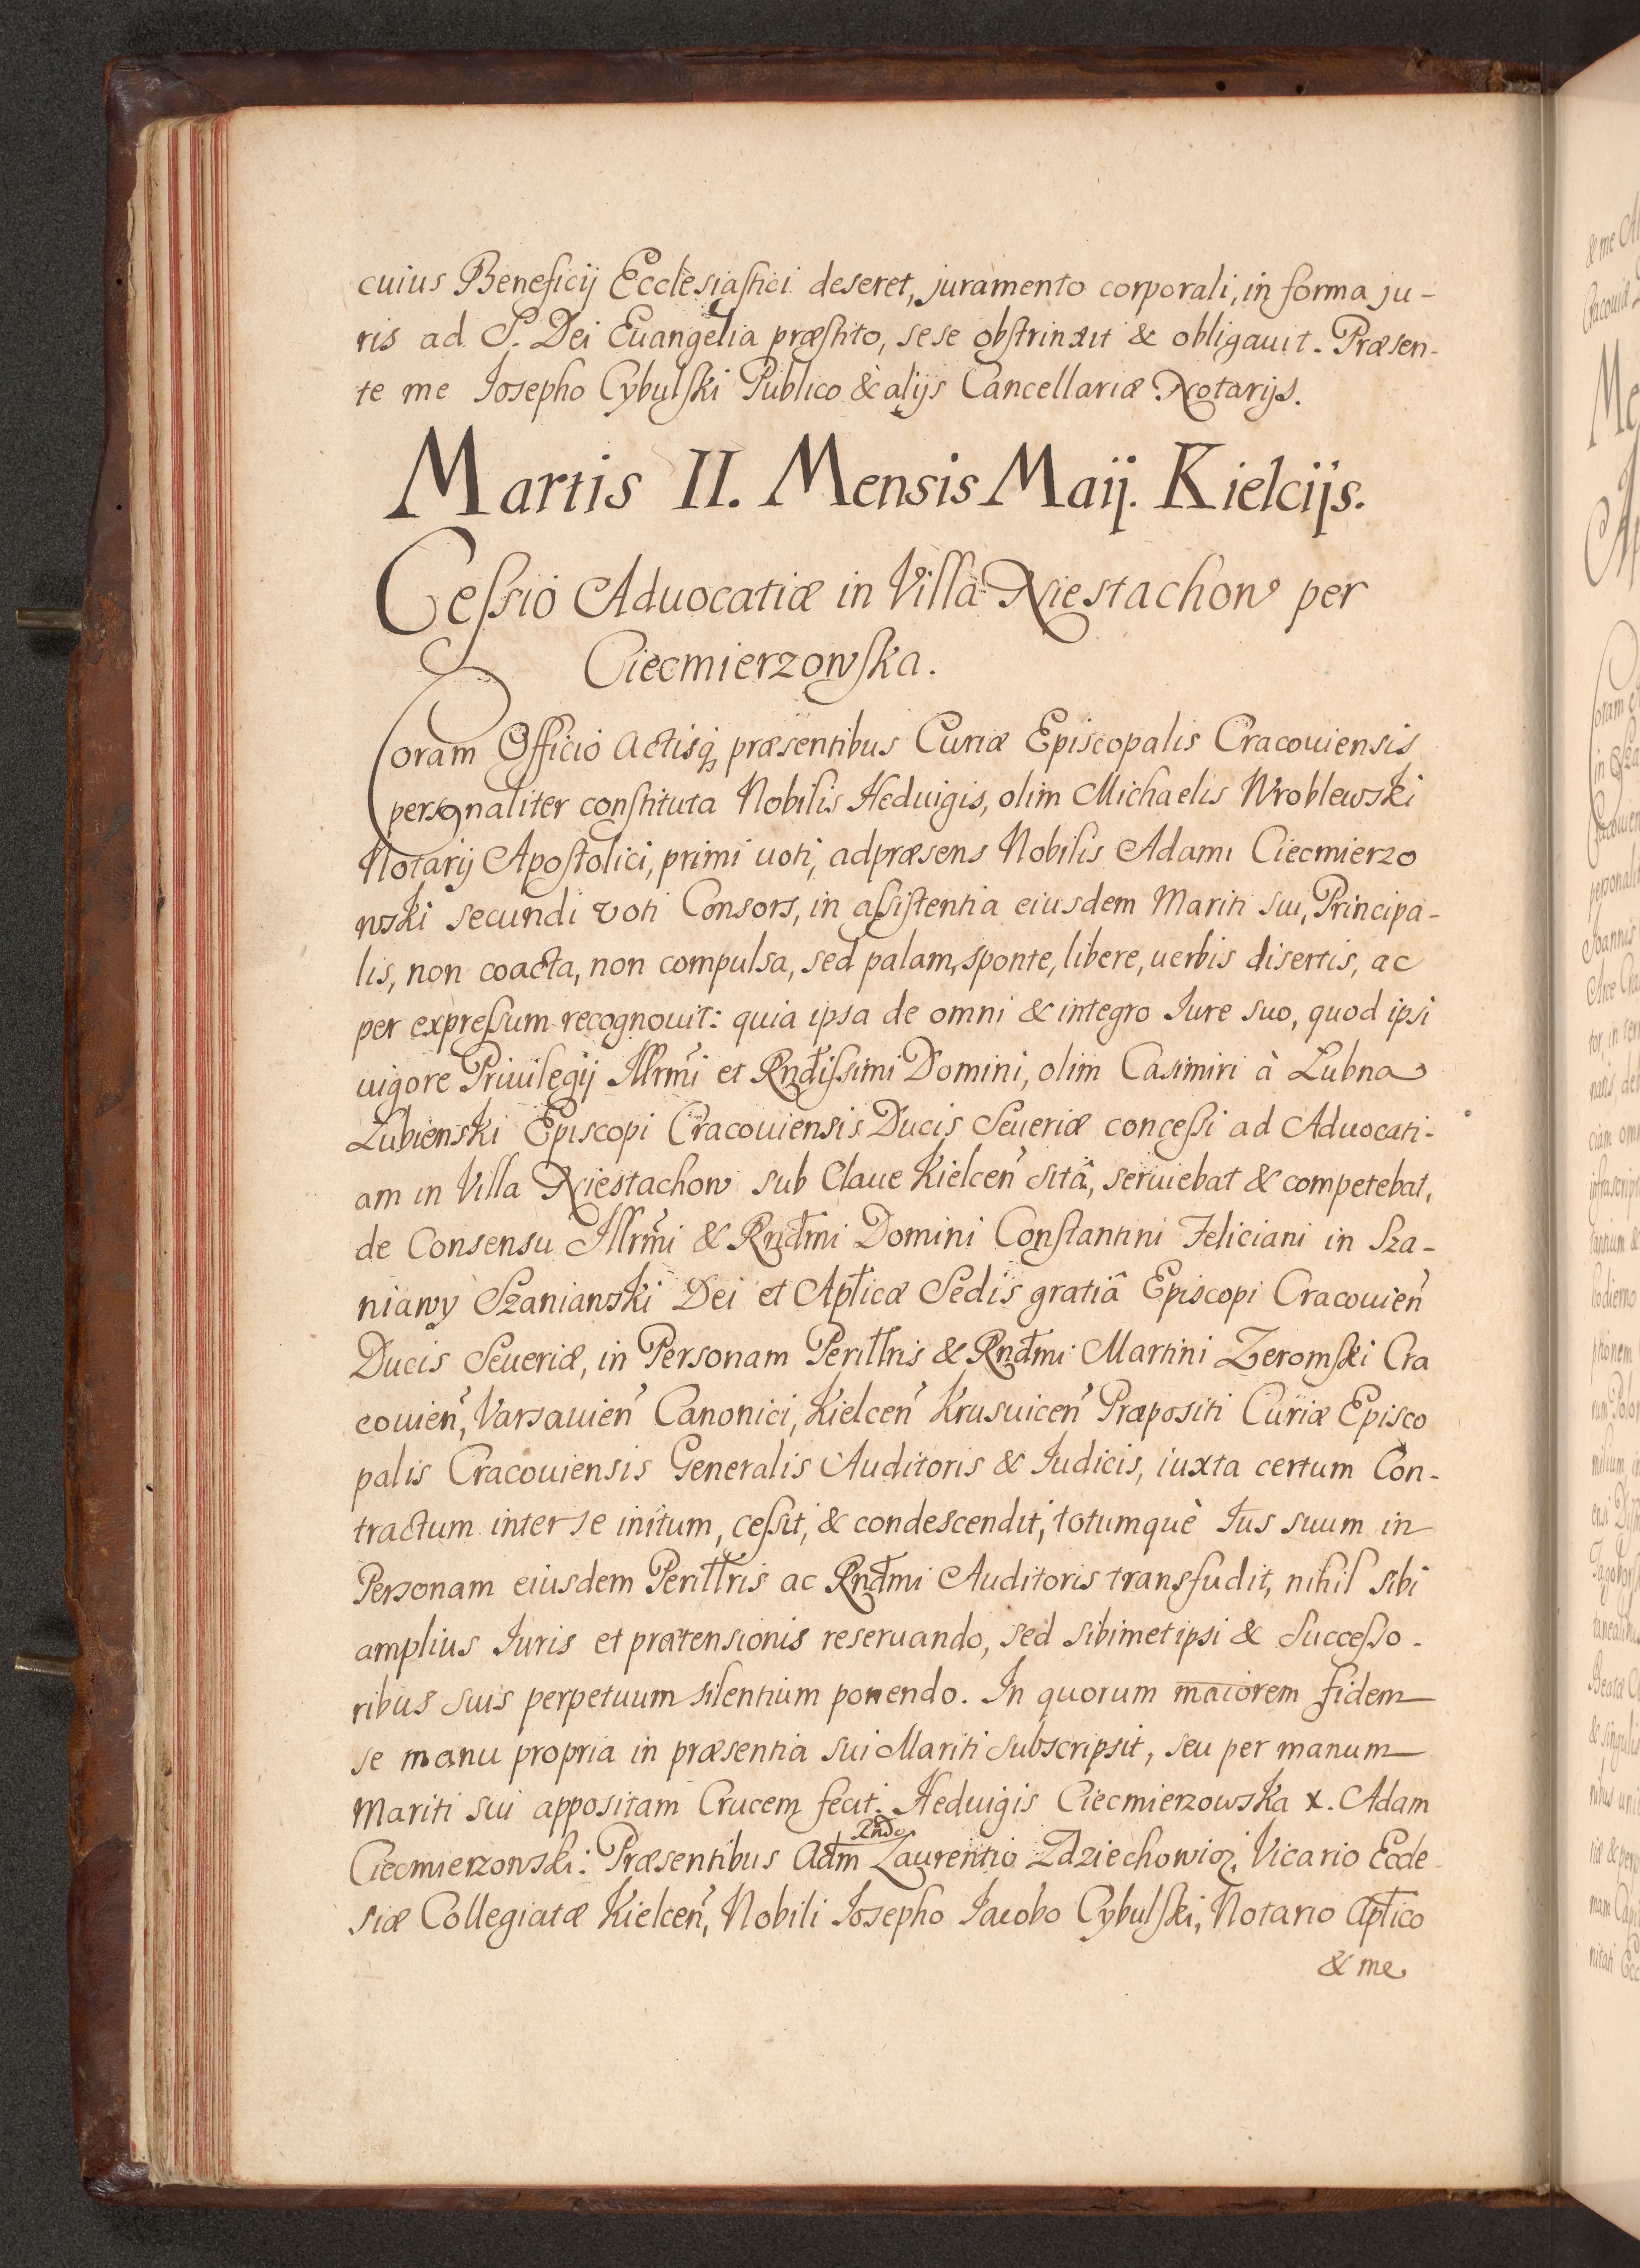 cuius Beneficij Ecclesiastici deseret, juramento corporali, in forma ju-
ris ad S. Dei Euangelia præstito, sese obstrinxit & obligauit. Præsen-
te me Iosepho Cybulski Publico & alijs Cancellariæ Notarijs.
Martis II. Mensis Maij. Kielcijs.
Cessio Aduocatiæ in Villa Niestachow per
Ciecmierzowska.
Coram Officio Actisq́ præsentibus Curiæ Episcopalis Cracouiensis
personaliter constituta Nobilis Heduigis, olim Michaelis Wroblewski
Notarij Apostolici, primi uoti, adpræsens Nobilis Adami Ciecmierzo
wski secundi voti Consors, in assistentia eiusdem Mariti sui, Principa-
lis, non coacta, non compulsa, sed palam, sponte, libere, uerbis disertis, ac
per expressum recognouit: quia ipsa de omni & integro Iure suo, quod ipsi
uigore Priuilegij Illrm̃i et Rnd̃issimi Domini, olim Casimiri à Lubna
Lubienski Episcopi Cracouiensis Ducis Seueriæ concessi ad Aduocati-
am in Villa Niestachow sub Claue Kielceñ sitâ, seruiebat & competebat,
de Consensu Illrm̃i & Rnd̃mi Domini Constantini Feliciani in Sza-
niawy Szaniawski Dei et Apl̃icæ Sedis gratiâ Episcopi Cracouieñ
Ducis Seueriæ, in Personam Perill̃ris & Rnd̃mi Martini Zeromski Cra
couieñ, Varsauieñ Canonici, Kielceñ Krusuiceñ Præpositi Curiæ Episco
palis Cracouiensis Generalis Auditoris & Iudicis, iuxta certum Con-
tractum inter se initum, cessit, & condescendit, totumquè Ius suum in
Personam eiusdem Perill̃ris ac Rnd̃mi Auditoris transfudit, nihil sibi
amplius Iuris et prætensionis reseruando, sed sibimetipsi & Successo-
ribus suis perpetuum silentium ponendo. In quorum maiorem fidem
se manu propria in præsentia sui Mariti subscripsit, seu per manum
Mariti sui appositam Crucem fecit. Heduigis Ciecmierzowska x. Adam
Ciecmierzowski. Præsentibus Ad̃m Rñdo Laurentio Zdziechowicz, Vicario Eccle
siæ Collegiatæ Kielceñ, Nobili Iosepho Iacobo Cybulski, Notario Apl̃ico
& me